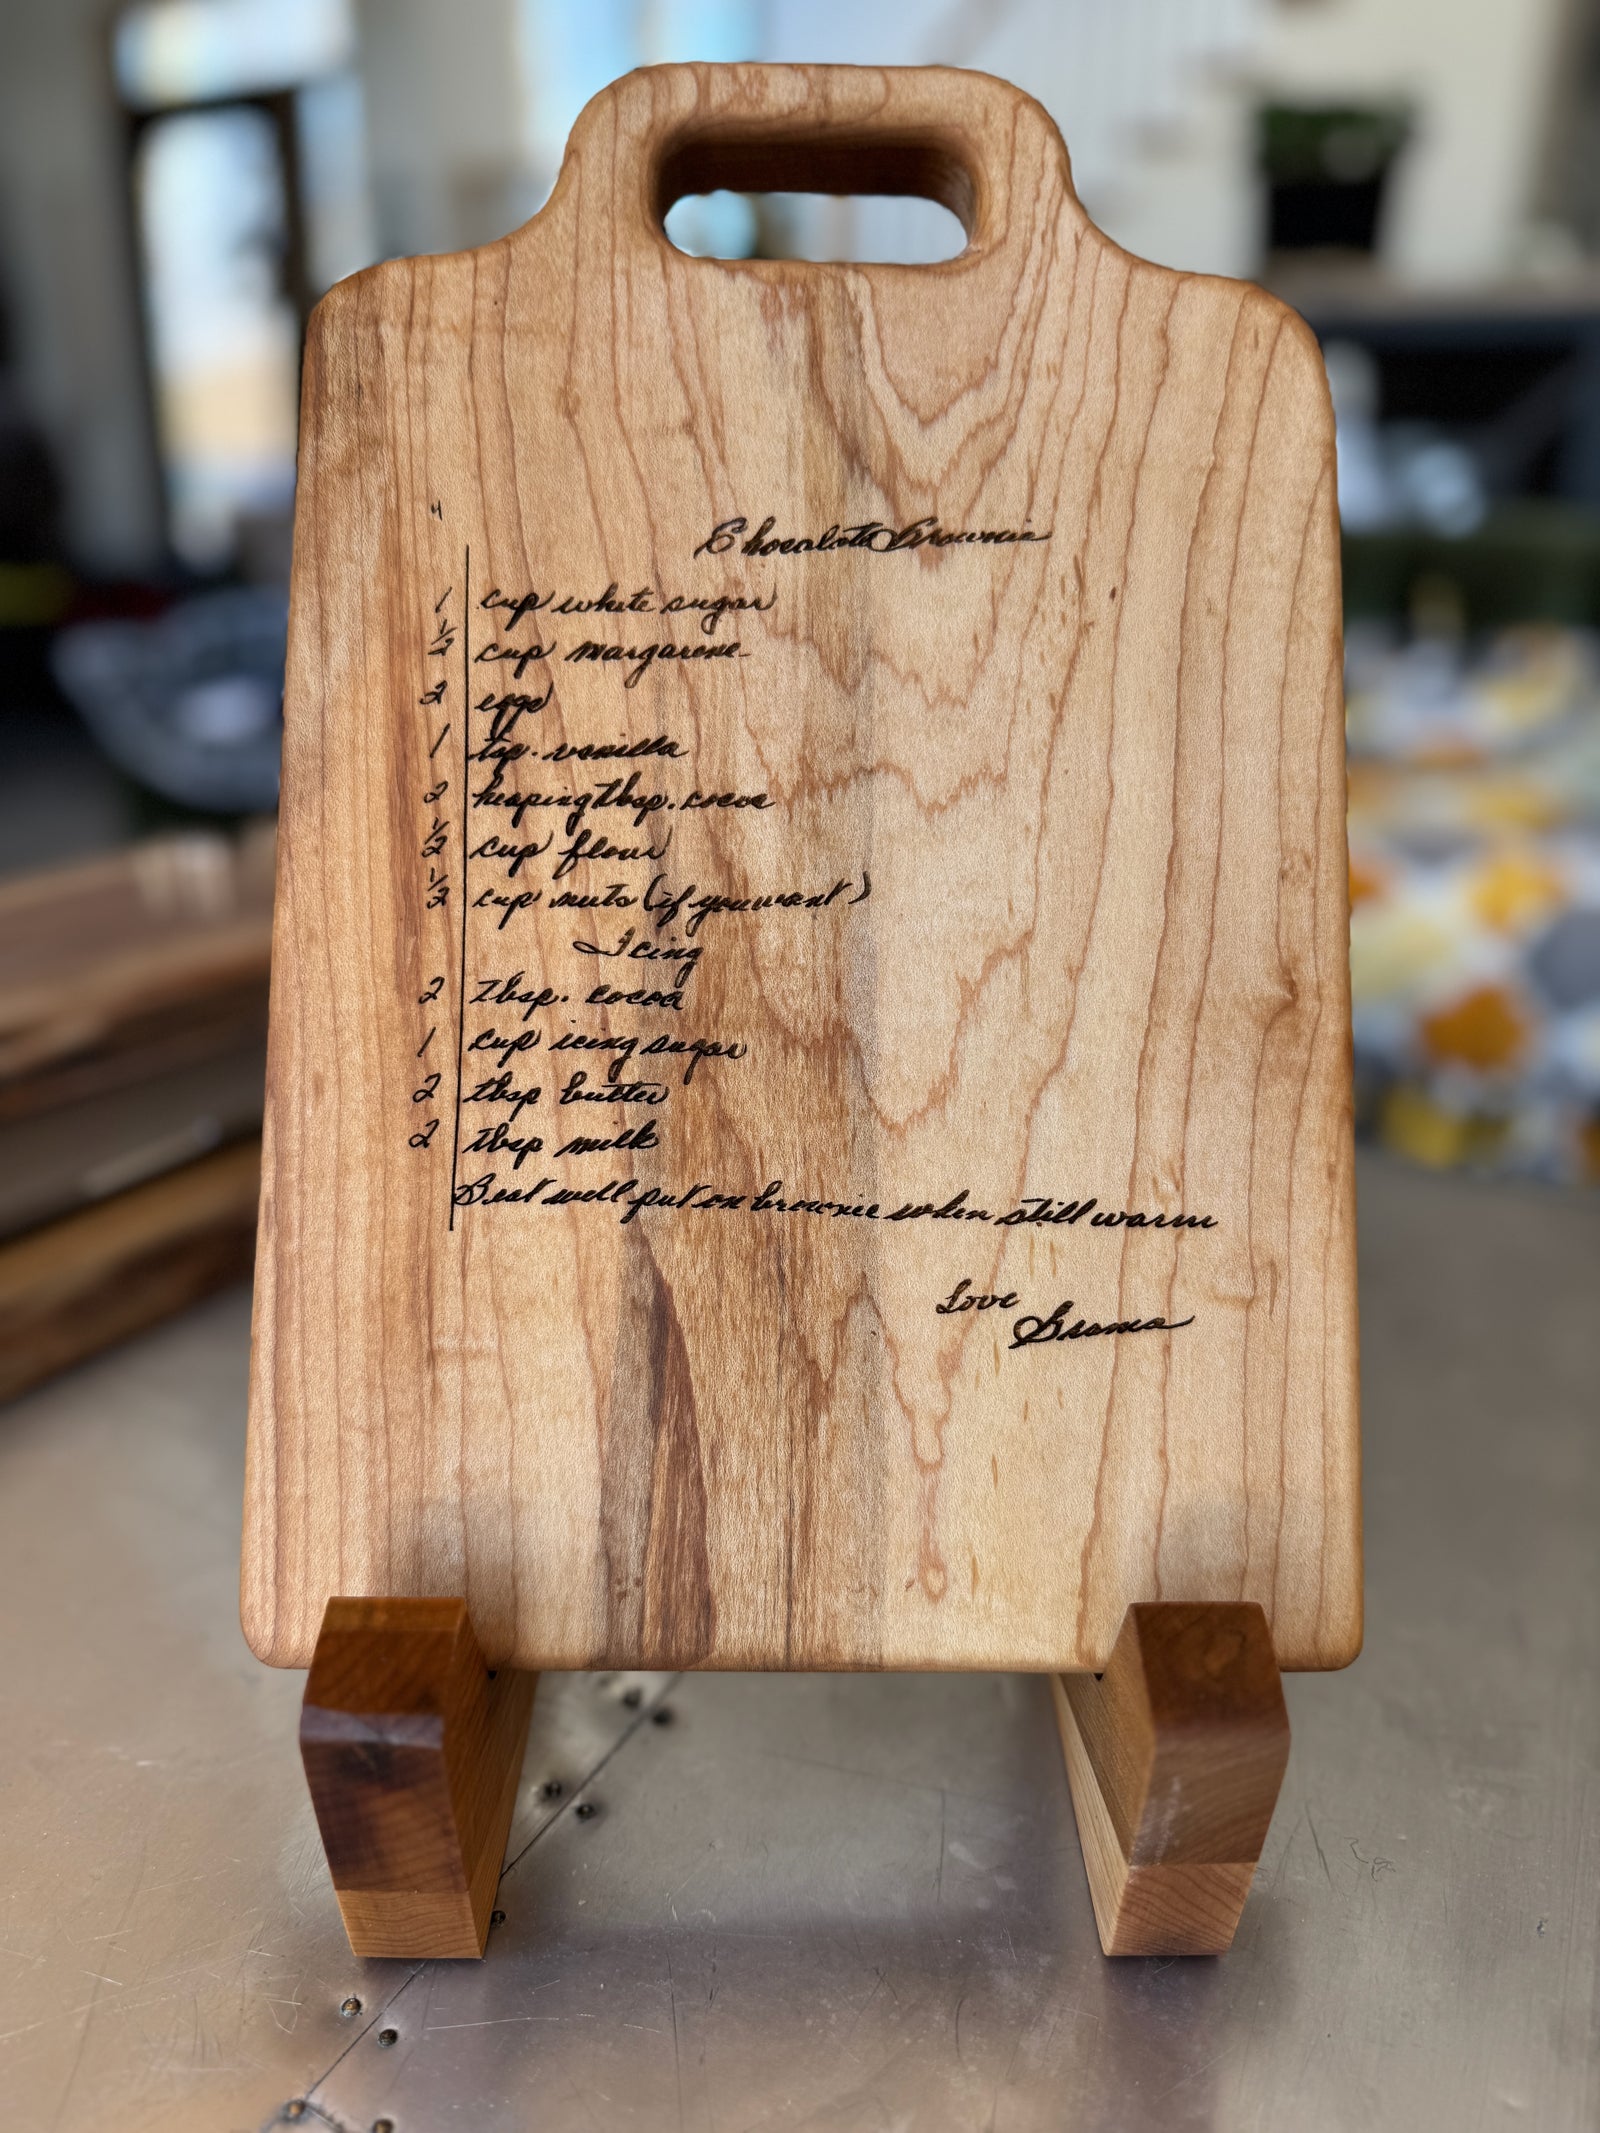 4
Chocolate Brownie
1 cup white sugar
1/2 cup margarine
2 eggs
1 tsp. vanilla
2 heaping tbsp. cocoa
1/2 cup flour
1/2 cup nuts (if you want)
Icing
2 Tbsp. cocoa
1 cup icing sugar
2 tbsp butter
2 tbsp milk
Beat well put on brownie when still warm
Love
Grama